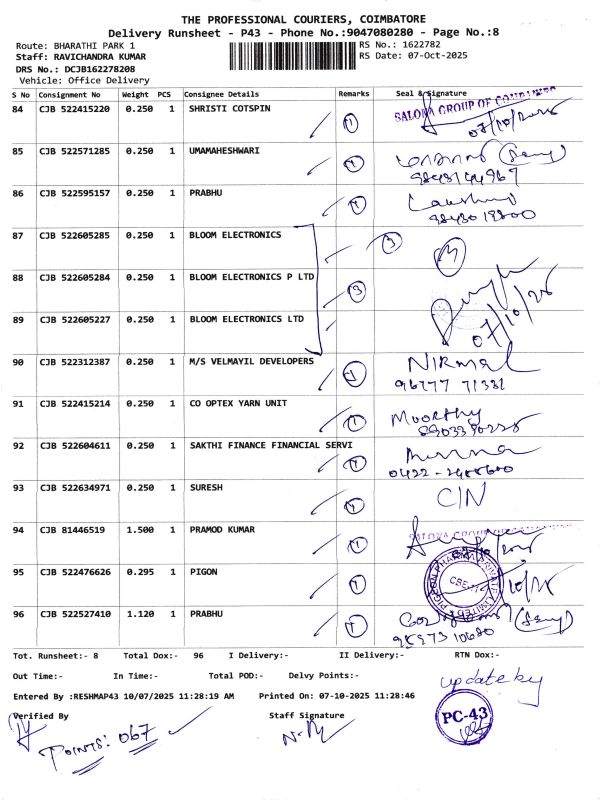 THE PROFESSIONAL COURIERS, COIMBATORE
Delivery Runsheet - P43 - Phone No.:9047080280 - Page No.:8
Route: BHARATHI PARK 1
RS No.: 1622782
Staff: RAVICHANDRA KUMAR
RS Date: 07-Oct-2025
DRS No.: DCJB162278208
Vehicle: Office Delivery
S No Consignment No Weight PCS Consignee Details Remarks Seal & Signature
84 CJB 522415220 0.250 1 SHRISTI COTSPIN 1 SALONA GROUP OF 07/10/2025
85 CJB 522571285 0.250 1 UMAMAHESHWARI 1
86 CJB 522595157 0.250 1 PRABHU 1
87 CJB 522605285 0.250 1 BLOOM ELECTRONICS 3
88 CJB 522605284 0.250 1 BLOOM ELECTRONICS P LTD 3
89 CJB 522605227 0.250 1 BLOOM ELECTRONICS LTD 07/10/25
90 CJB 522312387 0.250 1 M/S VELMAYIL DEVELOPERS 1 NIRmal
96777 71382
91 CJB 522415214 0.250 1 CO OPTEX YARN UNIT 1 Moorthy
92 CJB 522604611 0.250 1 SAKTHI FINANCE FINANCIAL SERVI 1
93 CJB 522634971 0.250 1 SURESH 1 C/N
94 CJB 81446519 1.500 1 PRAMOD KUMAR 1
95 CJB 522476626 0.295 1 PIGON 1
96 CJB 522527410 1.120 1 PRABHU 1
Tot. Runsheet:- 8 Total Dox:- 96 I Delivery:- II Delivery:- RTN Dox:-
Out Time:- In Time:- Total POD:- Delvy Points:-
update by
Entered By :RESHMAP43 10/07/2025 11:28:19 AM Printed On: 07-10-2025 11:28:46
PC-43
Verified By Staff Signature
POINTS: 067